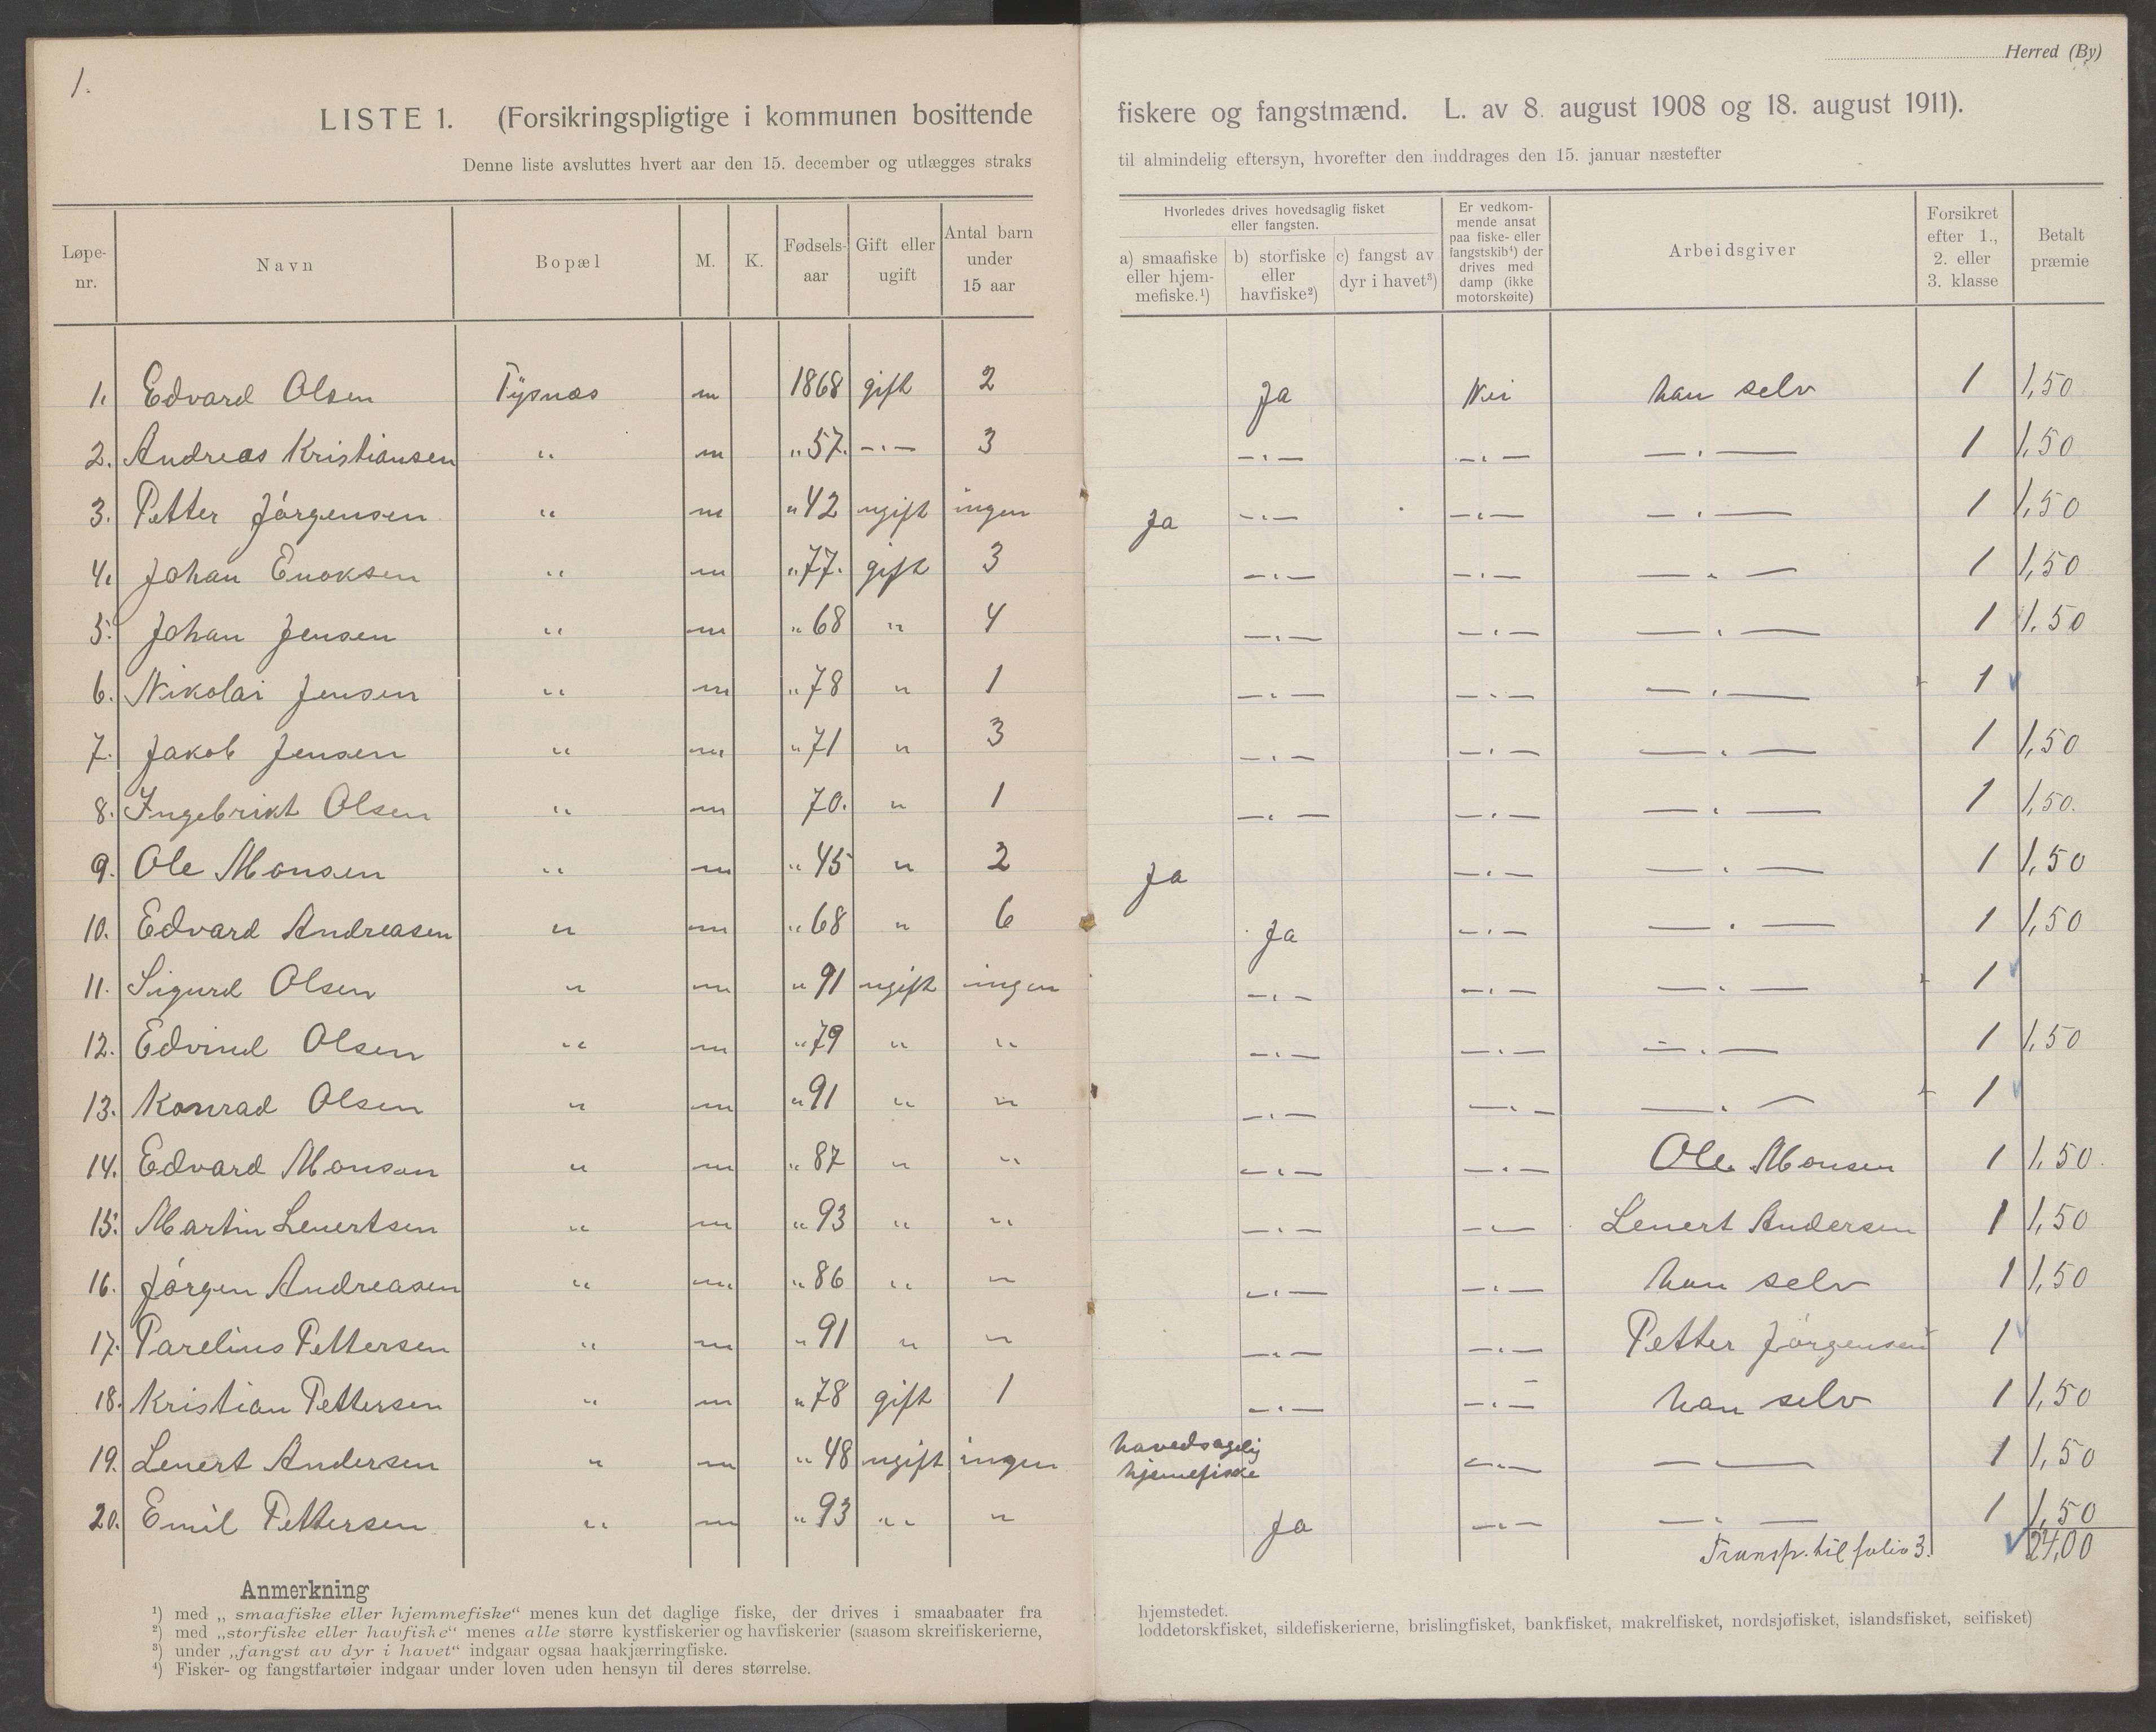 1.
Herred (By)
LISTE 1. (Forsikringspligtige i kommunen bosittende fiskere og fangstmænd. L. av 8. august 1908 og 18. august 1911).
Denne liste avsluttes hvert aar den 15. december og utlægges straks til almindelig eftersyn, hvorefter den inddrages den 15. januar næstefter
Løpe-nr. Navn Bopæl M. K. Fødsels-aar Gift eller ugift Antal barn under 15 aar Hvorledes drives hovedsaglig fisket eller fangsten. a) smaafiske eller hjem-mefiske.¹) b) storfiske eller havfiske²) c) fangst av dyr i havet³) Er vedkom-mende ansat paa fiske- eller fangstskib⁴) der drives med damp (ikke motorskøite) Arbeidsgiver Forsikret efter 1., 2. eller 3. klasse Betalt præmie
1. Edvard Olsen Tysnæs m 1868 gift 2 Ja Nei han selv 1 1,50
2. Andreas Kristiansen " m " 57. -·- 3 -·- -·- -·- 1 1,50
3. Petter Jörgensen " m " 42 ugift ingen Ja -·- -·- -·- 1 1,50
4. Johan Enoksen " m " 77. gift 3 -·- -·- -·- 1 1,50
5. Johan Jensen " m " 68 " 4 -·- -·- -·- 1 1,50
6. Nikolai Jensen " m " 78 " 1 -·- -·- -·- 1
7. Jakob Jensen " m " 71 " 3 -·- -·- -·- 1 1,50
8. Ingebrikt Olsen " m 70. " 1 -·- -·- -·- 1 1,50.
9. Ole Monsen " m " 45 " 2 Ja -·- -·- 1 1,50
10. Edvard Andreasen " m " 68 " 6 Ja -·- -·- 1 1,50
11. Sigurd Olsen " m " 91 ugift ingen -·- -·- -·- 1
12. Edvind Olsen " m " 79 " " -·- -·- -·- 1 1,50
13. Konrad Olsen " m " 91 " " -·- -·- -·- 1
14. Edvard Monsen " m " 87 " " -·- -·- Ole Monsen 1 1,50.
15. Martin Lenertsen " m " 93 " " -·- -·- Lenert Andersen 1 1,50
16. Jörgen Andreasen " m " 86 " " -·- -·- han selv 1 1,50
17. Parelius Pettersen " m " 91 " " -·- -·- Petter Jörgensen 1
18. Kristian Pettersen " m " 78 gift 1 -·- -·- han selv 1 1,50
19. Lenert Andersen " m " 48 ugift ingen havedsagelig hjemefiske -·- -·- 1 1,50
20. Emil Pettersen " m " 93 " " Ja -·- -·- 1 1,50
Transp. til folio 3. 24,00
Anmerkning
¹) med „smaafiske eller hjemmefiske“ menes kun det daglige fiske, der drives i smaabaater fra hjemstedet.
²) med „storfiske eller havfiske“ menes alle større kystfiskerier og havfiskerier (saasom skreifiskerierne, loddetorskfisket, sildefiskerierne, brislingfisket, bankfisket, makrelfisket, nordsjøfisket, islandsfisket, seifisket)
³) under „fangst av dyr i havet“ indgaar ogsaa haakjærringfiske.
⁴) Fisker- og fangstfartøier indgaar under loven uden hensyn til deres størrelse.